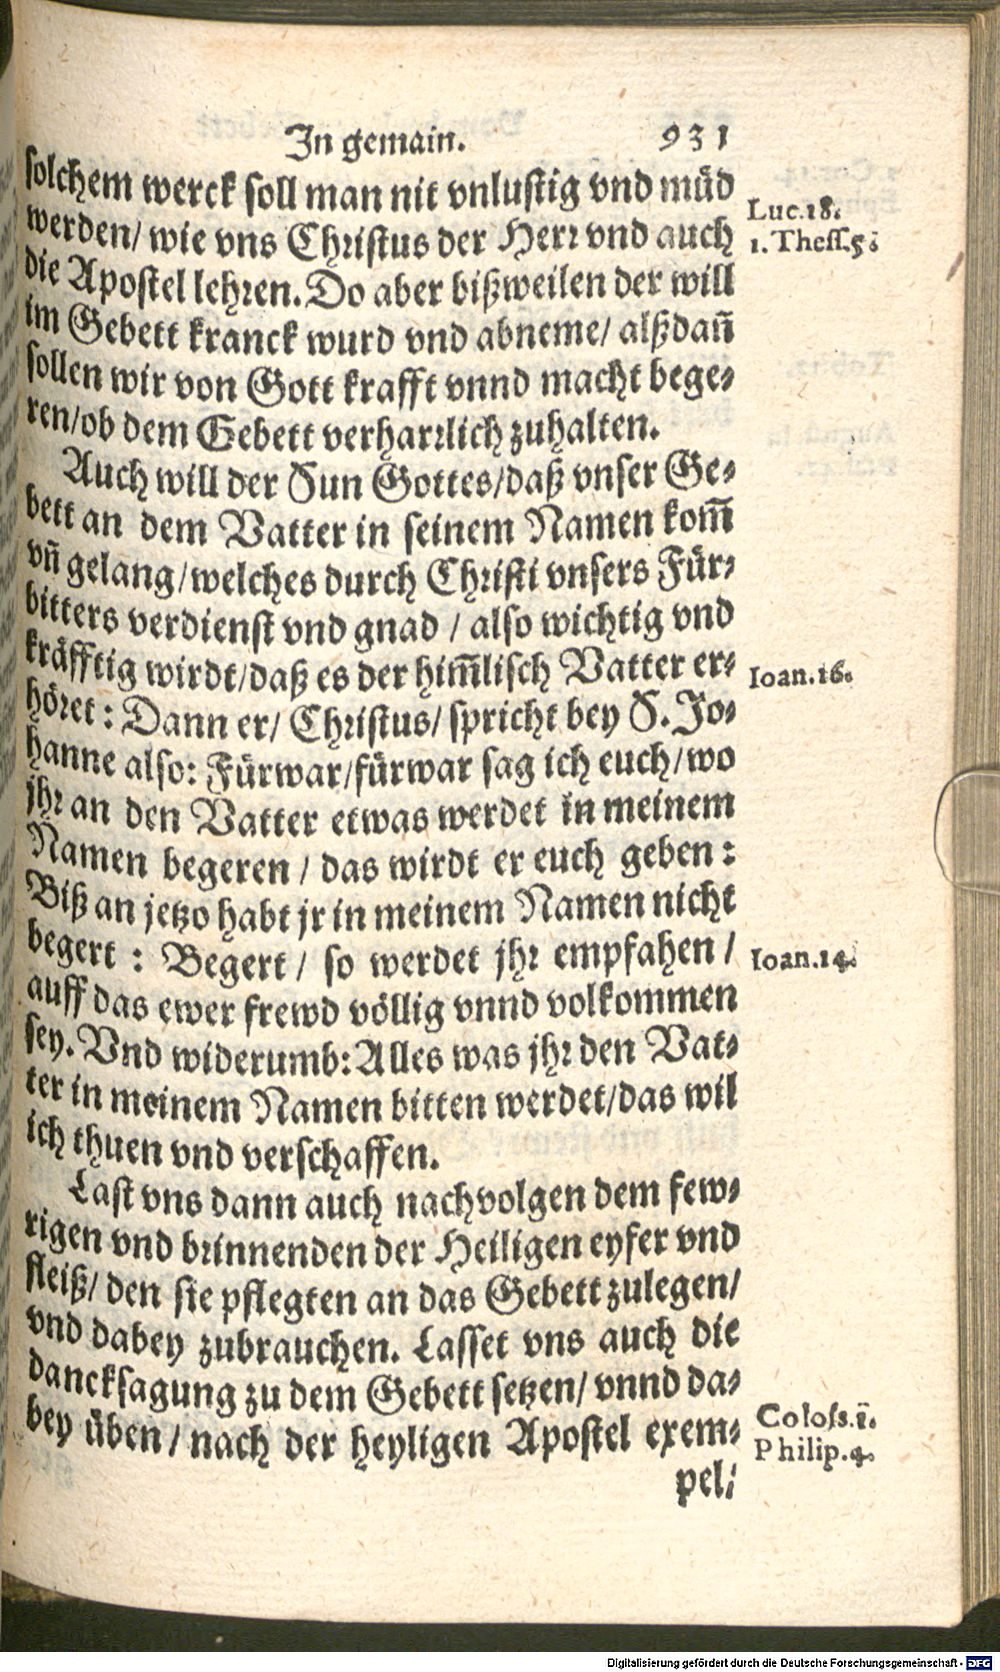 In gemain. 931
solchem werck soll man nit vnlustig vnd müd
werden/ wie vns Christus der Herr vnd auch
die Apostel lehren. Do aber bißweilen der will
im Gebett kranck wurd vnd abneme/ alßdañ
sollen wir von Gott krafft vnnd macht bege-
ren/ob dem Gebett verharrlich zuhalten.
Luc.18.
1. Thess.5.
Auch will der Sun Gottes/daß vnser Ge-
bett an dem Vatter in seinem Namen kom̃
vñ gelang/welches durch Christi vnsers Für-
bitters verdienst vnd gnad / also wichtig vnd
kräfftig wirdt/daß es der him̃lisch Vatter er-
höret: Dann er/ Christus/ spricht bey S. Jo-
hanne also: Fürwar/fürwar sag ich euch/wo
jhr an den Vatter etwas werdet in meinem
Namen begeren / das wirdt er euch geben:
Biß an jetzo habt jr in meinem Namen nicht
begert : Begert / so werdet jhr empfahen /
auff das ewer frewd völlig vnnd volkommen
sey. Vnd widerumb: Alles was jhr den Vat-
ter in meinem Namen bitten werdet/das wil
ich thuen vnd verschaffen.
Ioan.16.
Ioan.14.
Last vns dann auch nachvolgen dem few-
rigen vnd brinnenden der Heiligen eyfer vnd
fleiß/ den sie pflegten an das Gebett zulegen/
vnd dabey zubrauchen. Lasset vns auch die
dancksagung zu dem Gebett setzen/ vnnd da-
bey üben / nach der heyligen Apostel exem-
pel:
Coloss.1.
Philip.4.
Digitalisierung gefördert durch die Deutsche Forschungsgemeinschaft - DFG